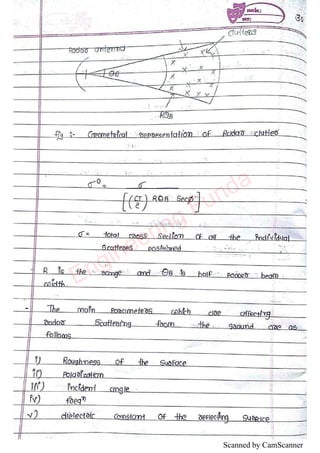 30
clutters
Radar antenna
θB
RθB
fig :- Geometrical representation of Radar clutter
σ° = σ
[(cτ/2) RθB Secφ]
σ = total cross section of all the individual
scatterers positioned
R is the range and θB is half power beam
width.
- The main parameters which are affecting
radar scattering from the ground are as
follows
i) Roughness of the surface
ii) Polarization
iii) incident angle
iv) freqⁿ
v) dielectric constant of the reflecting surface
Engineering Funda
Scanned by CamScanner